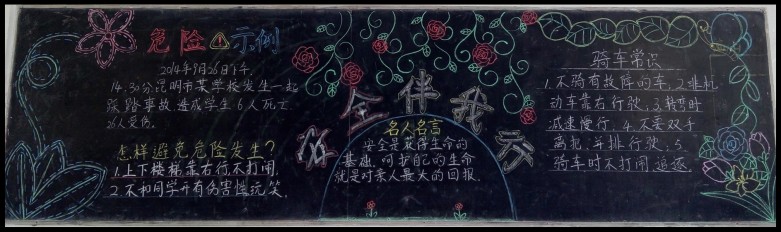 危险⚠示例
2014年9月26日下午,
14.30分昆明市某学校发生一起
踩踏事故造成学生6人死亡
26人受伤。
怎样避免危险发生?
1.上下楼梯靠右行不打闹.
2.不和同学开有伤害性玩笑.
安全伴我行
名人名言
安全是获得生命的
基础,呵护自己的生命
就是对亲人最大的回报.
骑车常识
1.不骑有故障的车,2.非机
动车靠右行驶;3.转弯时
减速慢行;4.不要双手
离把;并排行驶;5.
骑车时不打闹追逐